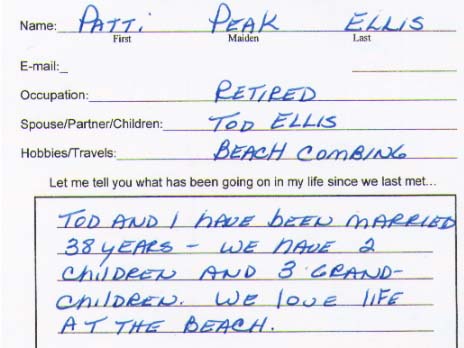 Name: PATTI PEAK ELLIS
First Maiden Last
E-mail:_
Occupation: RETIRED
Spouse/Partner/Children: TOD ELLIS
Hobbies/Travels: BEACH COMBING
Let me tell you what has been going on in my life since we last met...
TOD AND I HAVE BEEN MARRIED
38 YEARS - WE HAVE 2
CHILDREN AND 3 GRAND-
CHILDREN. WE LOVE LIFE
AT THE BEACH.